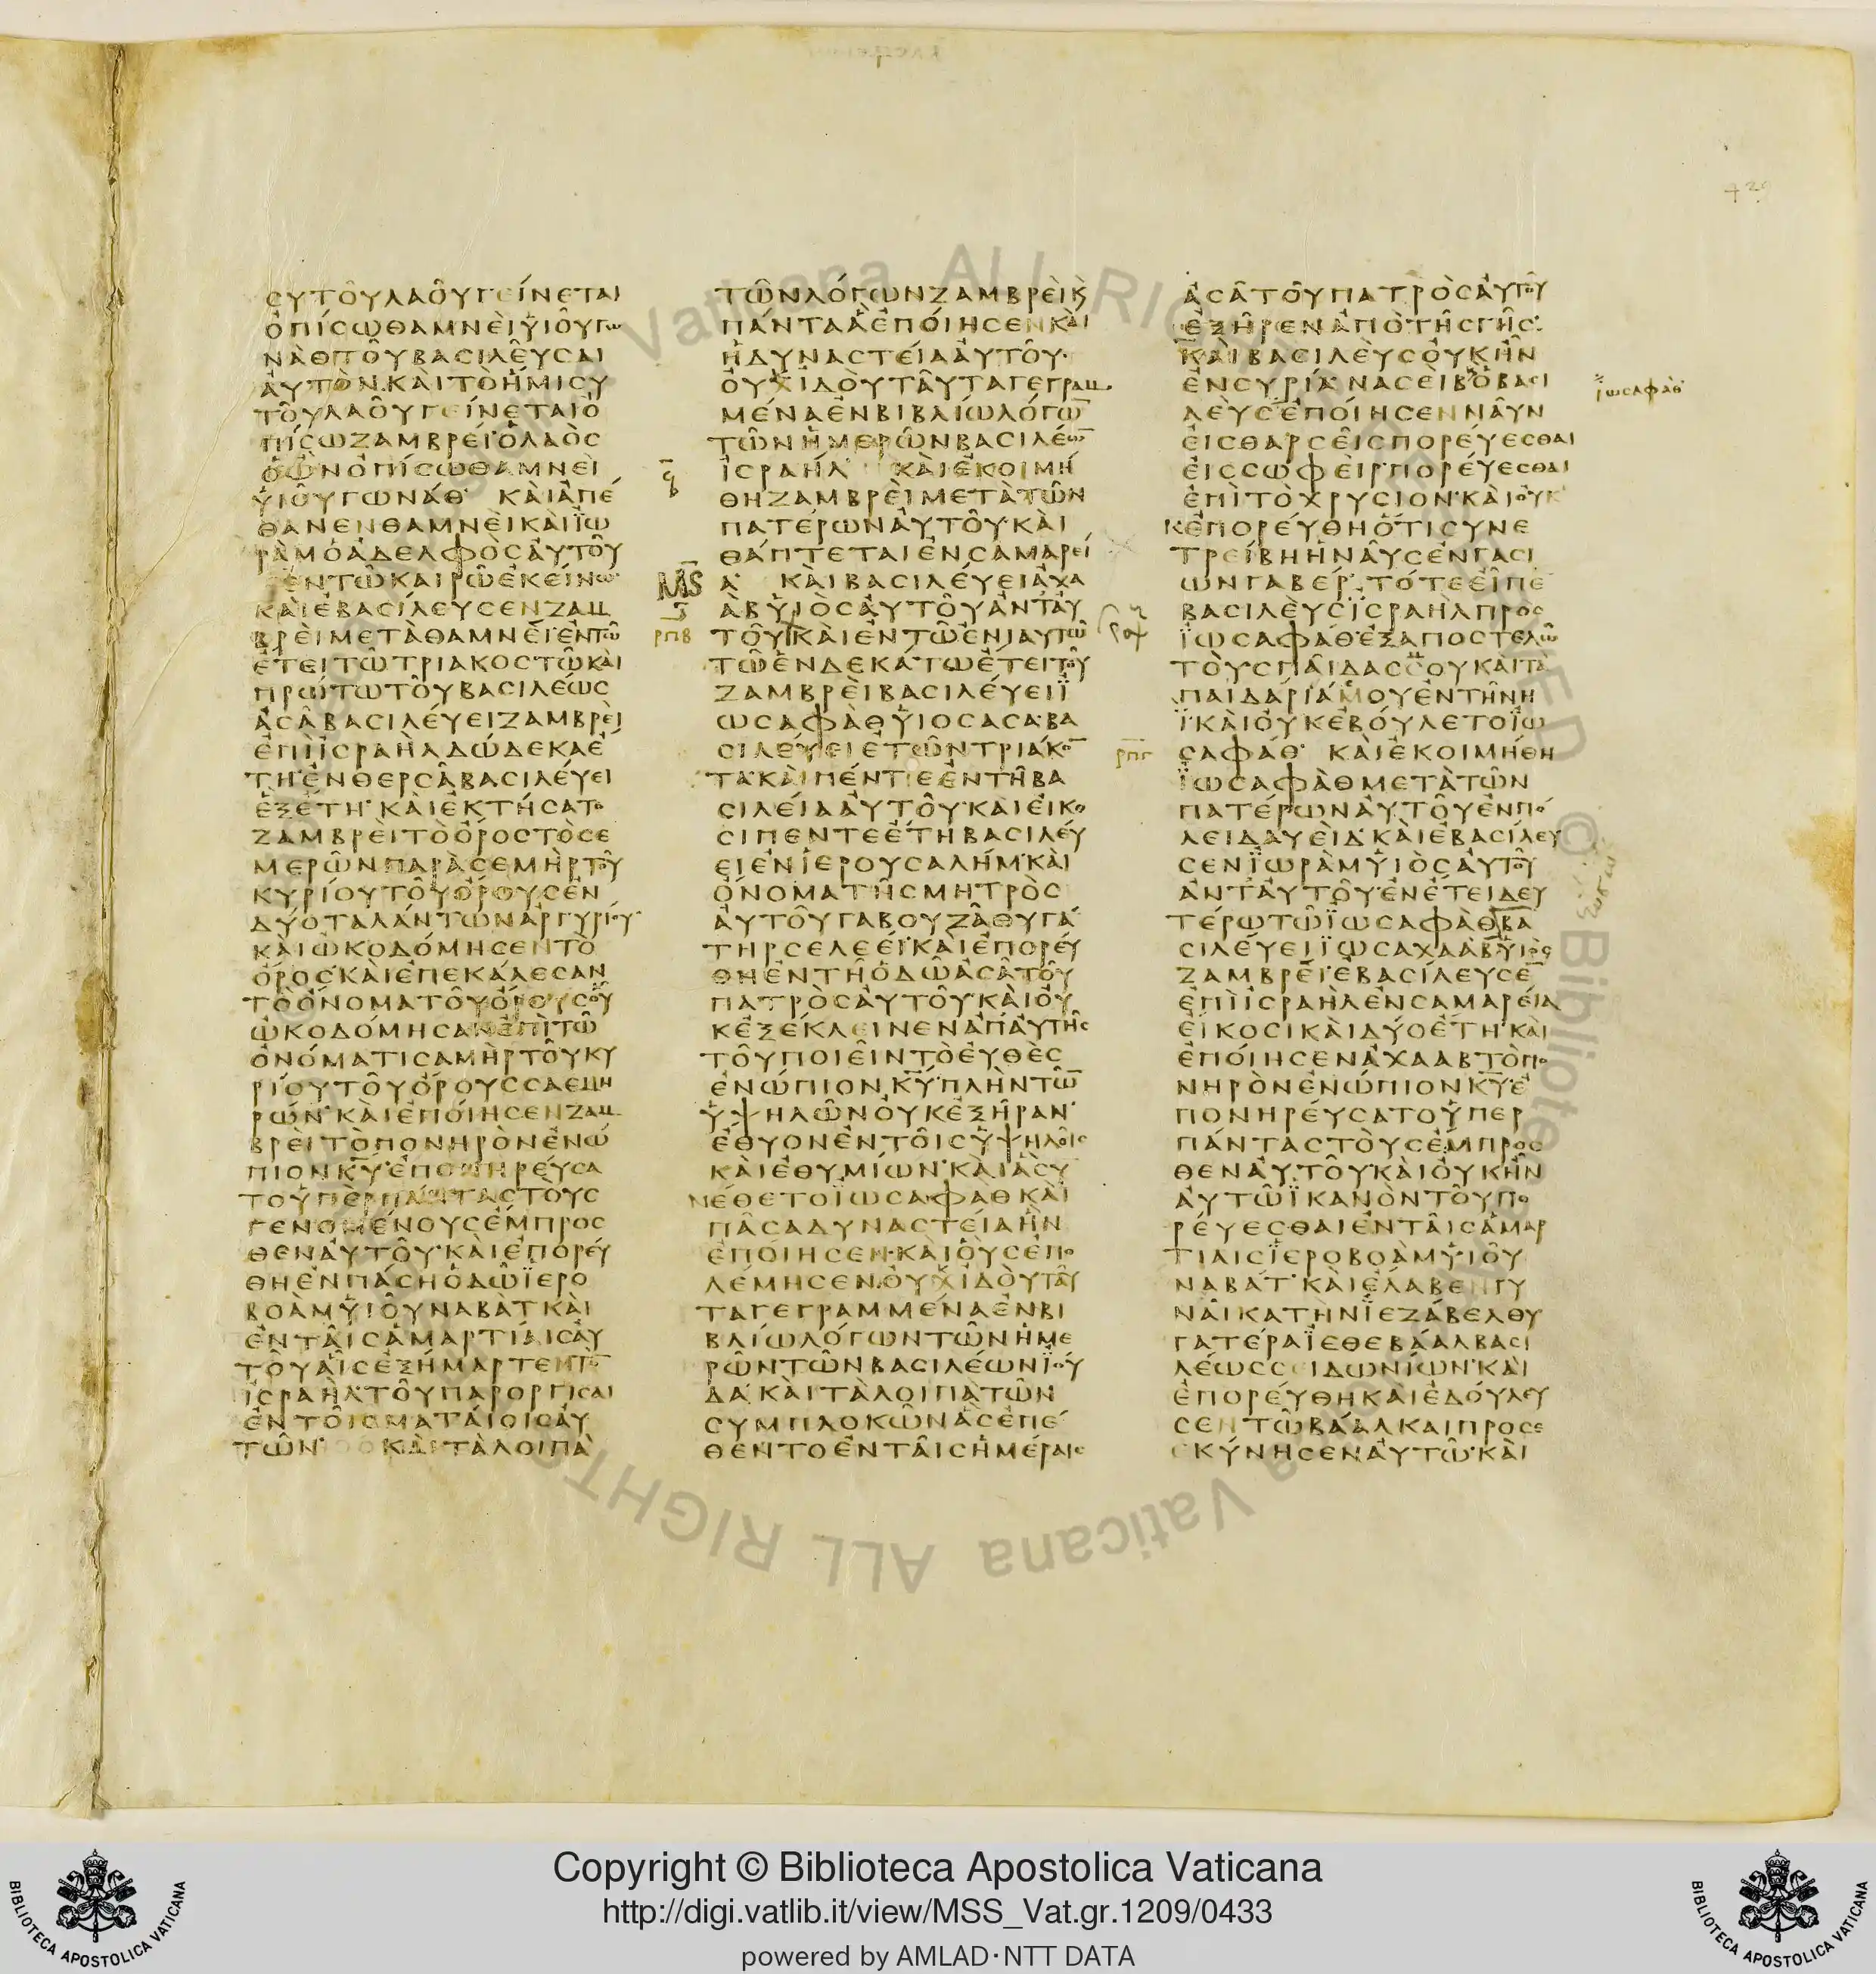 ϹΥΤΟΥΛΑΟΥΓΕΙΝΕΤΑΙ
ΟΠΙϹΩΘΑΜΝΕΙΥΙΟΥΓΩ
ΝΑΘΤΟΥΒΑϹΙΛΕΥϹΑΙ
ΑΥΤΟΝΚΑΙΤΟΗΜΙϹΥ
ΤΟΥΛΑΟΥΓΕΙΝΕΤΑΙΟ
ΠΙϹΩΖΑΜΒΡΕΙΟΛΑΟϹ
ΟΩΝΟΠΙϹΩΘΑΜΝΕΙ
ΥΙΟΥΓΩΝΑΘ ΚΑΙΑΠΕ
ΘΑΝΕΝΘΑΜΝΕΙΚΑΙΪΩ
ΡΑΜΟΑΔΕΛΦΟϹΑΥΤΟΥ
ΕΝΤΩΚΑΙΡΩΕΚΕΙΝΩ
ΚΑΙΕΒΑϹΙΛΕΥϹΕΝΖΑΜ
ΒΡΕΙΜΕΤΑΘΑΜΝΕΙΕΝΤΩ
ΕΤΕΙΤΩΤΡΙΑΚΟϹΤΩΚΑΙ
ΠΡΩΤΩΤΟΥΒΑϹΙΛΕΩϹ
ΑϹΑΒΑϹΙΛΕΥΕΙΖΑΜΒΡΕΙ
ΕΠΙΙϹΡΑΗΛΔΩΔΕΚΑΕ
ΤΗΕΝΘΕΡϹΑΒΑϹΙΛΕΥΕΙ
ΕΞΕΤΗ ΚΑΙΕΚΤΗϹΑΤΟ
ΖΑΜΒΡΕΙΤΟΟΡΟϹΤΟϹΕ
ΜΕΡΩΝΠΑΡΑϹΕΜΗΡΤΟΥ
ΚΥΡΙΟΥΤΟΥΟΡΟΥϹΕΝ
ΔΥΟΤΑΛΑΝΤΩΝΑΡΓΥΡΙΟΥ
ΚΑΙΩΚΟΔΟΜΗϹΕΝΤΟ
ΟΡΟϹΚΑΙΕΠΕΚΑΛΕϹΑΝ
ΤΟΟΝΟΜΑΤΟΥΟΡΟΥϹΟΥ
ΩΚΟΔΟΜΗϹΑΝΕΠΙΤΩ
ΟΝΟΜΑΤΙϹΑΜΗΡΤΟΥΚΥ
ΡΙΟΥΤΟΥΟΡΟΥϹϹΑΕΜΗ
ΡΩΝ ΚΑΙΕΠΟΙΗϹΕΝΖΑΜ
ΒΡΕΙΤΟΠΟΝΗΡΟΝΕΝΩ
ΠΙΟΝΚΥ ΕΠΟΝΗΡΕΥϹΑ
ΤΟΥΠΕΡΠΑΝΤΑϹΤΟΥϹ
ΓΕΝΟΜΕΝΟΥϹΕΜΠΡΟϹ
ΘΕΝΑΥΤΟΥ ΚΑΙΕΠΟΡΕΥ
ΘΗΕΝΠΑϹΗΟΔΩΪΕΡΟ
ΒΟΑΜΥΙΟΥΝΑΒΑΤΚΑΙ
ΕΝΤΑΙϹΑΜΑΡΤΙΑΙϹΑΥ
ΤΟΥΑΙϹΕΞΗΜΑΡΤΕΝΤΟ
ΙϹΡΑΗΛΤΟΥΠΑΡΟΡΓΙϹΑΙ
ΕΝΤΟΙϹΜΑΤΑΙΟΙϹΑΥ
ΤΩΝ ΚΑΙΤΑΛΟΙΠΑ
ΤΩΝΛΟΓΩΝΖΑΜΒΡΕΙϏ
ΠΑΝΤΑΑΕΠΟΙΗϹΕΝΚΑΙ
ΗΔΥΝΑϹΤΕΙΑΑΥΤΟΥ
ΟΥΧΙΔΟΥΤΑΥΤΑΓΕΓΡΑΜ
ΜΕΝΑΕΝΒΙΒΛΙΩΛΟΓΩ̅
ΤΩΝΗΜΕΡΩΝΒΑϹΙΛΕΩ̅
ΙϹΡΑΗΛ ΚΑΙΕΚΟΙΜΗ
ΘΗΖΑΜΒΡΕΙΜΕΤΑΤΩΝ
ΠΑΤΕΡΩΝΑΥΤΟΥ ΚΑΙ
ΘΑΠΤΕΤΑΙΕΝϹΑΜΑΡΕΙ
Α ΚΑΙΒΑϹΙΛΕΥΕΙΑΧΑ
ΑΒΥΙΟϹΑΥΤΟΥΑΝΤΑΥ
ρπβ
ΤΟΥΚΑΙΕΝΤΩΕΝΙΑΥΤΩ
ΤΩΕΝΔΕΚΑΤΩΕΤΕΙΤΟΥ
ΖΑΜΒΡΕΙΒΑϹΙΛΕΥΕΙΪ
ΩϹΑΦΑΘΥΙΟϹΑϹΑ ΒΑ
ϹΙΛΕΥΕΙΕΤΩΝΤΡΙΑΚΟ̅
ΤΑ ΚΑΙΠΕΝΤΕΕΝΤΗΒΑ
ϹΙΛΕΙΑΑΥΤΟΥ ΚΑΙΕΙΚΟ
ϹΙΠΕΝΤΕΕΤΗΒΑϹΙΛΕΥ
ΕΙΕΝΙΕΡΟΥϹΑΛΗΜ ΚΑΙ
ΟΝΟΜΑΤΗϹΜΗΤΡΟϹ
ΑΥΤΟΥΓΑΒΟΥΖΑΘΥΓΑ
ΤΗΡϹΕΛΕΕΙ ΚΑΙΕΠΟΡΕΥ
ΘΗΕΝΤΗΟΔΩΑϹΑΤΟΥ
ΠΑΤΡΟϹΑΥΤΟΥ ΚΑΙΟΥ
ΚΕΞΕΚΛΕΙΝΕΝΑΠΑΥΤΗϹ
ΤΟΥΠΟΙΕΙΝΤΟΕΥΘΕϹ
ΕΝΩΠΙΟΝΚΥ ΠΛΗΝΤΩ̅
ΥΨΗΛΩΝΟΥΚΕΞΗΡΑΝ
ΕΘΥΟΝΕΝΤΟΙϹΥΨΗΛΟΙϹ
ΚΑΙΕΘΥΜΙΩΝ ΚΑΙΑϹΥ
ΝΕΘΕΤΟΪΩϹΑΦΑΘΚΑΙ
ΠΑϹΑΔΥΝΑϹΤΕΙΑΗΝ
ΕΠΟΙΗϹΕΝ ΚΑΙΟΥϹΕΠΟ
ΛΕΜΗϹΕΝ ΟΥΧΙΔΟΥΤΑΥ
ΤΑΓΕΓΡΑΜΜΕΝΑΕΝΒΙ
ΒΛΙΩΛΟΓΩΝΤΩΝΗΜΕ
ΡΩΝΤΩΝΒΑϹΙΛΕΩΝΪΟΥ
ΔΑ ΚΑΙΤΑΛΟΙΠΑΤΩΝ
ϹΥΜΠΛΟΚΩΝΑϹΕΠΕ
ΘΕΝΤΟΕΝΤΑΙϹΗΜΕΡΑΙϹ
ΑϹΑΤΟΥΠΑΤΡΟϹΑΥΤΟΥ
ΕΞΗΡΕΝΑΠΟΤΗϹΓΗϹ
ΚΑΙΒΑϹΙΛΕΥϹΟΥΚΗΝ
ΕΝϹΥΡΙΑ ΝΑϹΕΙΒΟΒΑϹΙ
ϊωσαφαθ
ΛΕΥϹΕΠΟΙΗϹΕΝΝΑΥΝ
ΕΙϹΘΑΡϹΕΙϹΠΟΡΕΥΕϹΘΑΙ
ΕΙϹϹΩΦΕΙΡ ΠΟΡΕΥΕϹΘΑΙ
ΕΠΙΤΟΧΡΥϹΙΟΝ ΚΑΙΟΥΚ
ΚΕΠΟΡΕΥΘΗΟΤΙϹΥΝΕ
ΤΡΕΙΒΗΗΝΑΥϹΕΝΓΑϹΙ
ΩΝΓΑΒΕΡ ΤΟΤΕΕΙΠΕ
ΒΑϹΙΛΕΥϹΪϹΡΑΗΛΠΡΟϹ
ΪΩϹΑΦΑΘ ΕΞΑΠΟϹΤΕΛΩ
ΤΟΥϹΠΑΙΔΑϹϹΟΥΚΑΙΤΑ
ΠΑΙΔΑΡΙΑΜΟΥΕΝΤΗΝΗ
Ϊ ΚΑΙΟΥΚΕΒΟΥΛΕΤΟΪΩ
ρπγ
ϹΑΦΑΘ ΚΑΙΕΚΟΙΜΗΘΗ
ΪΩϹΑΦΑΘΜΕΤΑΤΩΝ
ΠΑΤΕΡΩΝΑΥΤΟΥΕΝΠΟ
ΛΕΙΔΑΥΕΙΔ ΚΑΙΕΒΑϹΙΛΕΥ
ϹΕΝΪΩΡΑΜΥΙΟϹΑΥΤΟΥ
ΑΝΤΑΥΤΟΥ ΕΝΕΤΕΙΔΕΥ
ΤΕΡΩΤΩΪΩϹΑΦΑΘΒΑ
ϹΙΛΕΥΕΙΪΩϹΑΧΑΑΒΥΙΟϹ
ΖΑΜΒΡΕΙ ΕΒΑϹΙΛΕΥϹΕ̅
ΕΠΙΙϹΡΑΗΛΕΝϹΑΜΑΡΕΙΑ
ΕΙΚΟϹΙΚΑΙΔΥΟΕΤΗ ΚΑΙ
ΕΠΟΙΗϹΕΝΑΧΑΑΒΤΟΠΟ
ΝΗΡΟΝΕΝΩΠΙΟΝΚΥ Ε
ΠΟΝΗΡΕΥϹΑΤΟΥΠΕΡ
ΠΑΝΤΑϹΤΟΥϹΕΜΠΡΟϹ
ΘΕΝΑΥΤΟΥΚΑΙΟΥΚΗΝ
ΑΥΤΩΪΚΑΝΟΝΤΟΥΠΟ
ΡΕΥΕϹΘΑΙΕΝΤΑΙϹΑΜΑΡ
ΤΙΑΙϹΪΕΡΟΒΟΑΜΥΙΟΥ
ΝΑΒΑΤ ΚΑΙΕΛΑΒΕΝΓΥ
ΝΑΙΚΑΤΗΝΪΕΖΑΒΕΛΘΥ
ΓΑΤΕΡΑΪΕΘΕΒΑΑΛΒΑϹΙ
ΛΕΩϹϹΙΔΩΝΙΩΝ ΚΑΙ
ΕΠΟΡΕΥΘΗΚΑΙΕΔΟΥΛΕΥ
ϹΕΝΤΩΒΑΑΛΚΑΙΠΡΟϹΕ
ΚΥΝΗϹΕΝΑΥΤΩ ΚΑΙ
Copyright © Biblioteca Apostolica Vaticana
http://digi.vatlib.it/view/MSS_Vat.gr.1209/0433
powered by AMLAD·NTT DATA
BIBLIOTECA APOSTOLICA VATICANA
BIBLIOTECA APOSTOLICA VATICANA